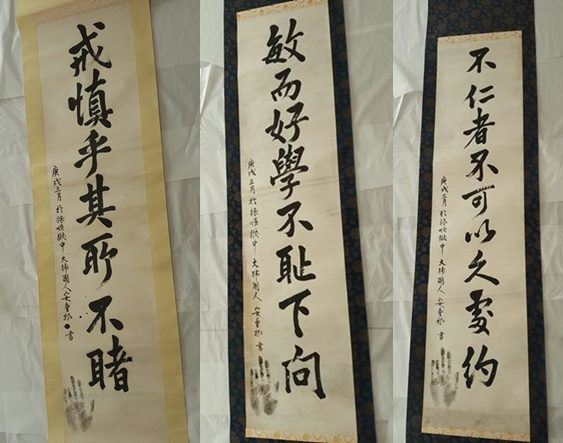 戒慎乎其所不睹
庚戌三月 於旅順獄中 大韓國人 安重根 書
敏而好學不耻下問
庚戌三月 於旅順獄中 大韓國人 安重根 書
不仁者不可以久處約
庚戌三月 於旅順獄中 大韓國人 安重根 書